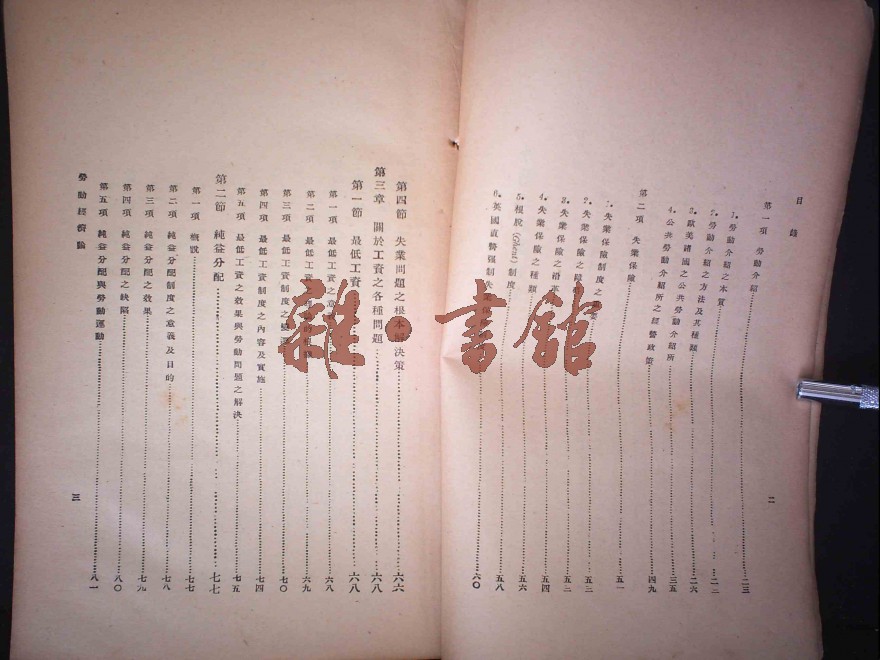 目錄
第一項 勞動介紹……二三
1. 勞動介紹之本質……二三
2. 勞動介紹之方法及其種類……二三
3. 歐美諸國之公共勞動介紹所……二六
4. 公共勞動介紹所之經營政策……三五
第二項 失業保險……四九
1. 失業保險制度之……五一
2. 失業保險之……五三
3. 失業保險之沿革……五三
4. 失業保險之種類……五四
5. 根脫(Ghent)制度……五六
6. 英國直營强制失業保險……五八
六〇
二
第四節 失業問題之根本解決策……六六
第三章 關於工資之各種問題……六八
第一節 最低工資……六八
第一項 最低工資之意……六八
第二項 最低工資……六九
第三項 最低工資制度之……七〇
第四項 最低工資制度之內容及實施……七四
第五項 最低工資之效果與勞動問題之解決……七五
第二節 純益分配……七七
第一項 概說……七七
第二項 純益分配制度之意義及目的……七八
第三項 純益分配之效果……七九
第四項 純益分配之缺陷……八〇
第五項 純益分配與勞動運動……八一
勞動經濟論
三
雜·書館